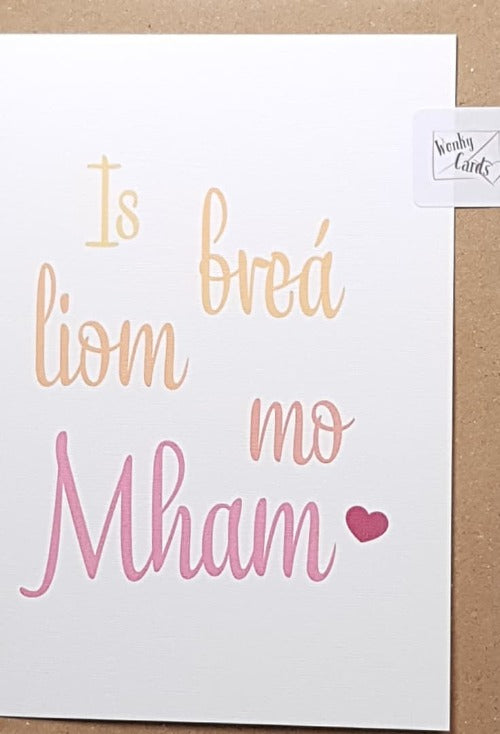 Is breá
liom
mo
Mham
Wonky
Cards